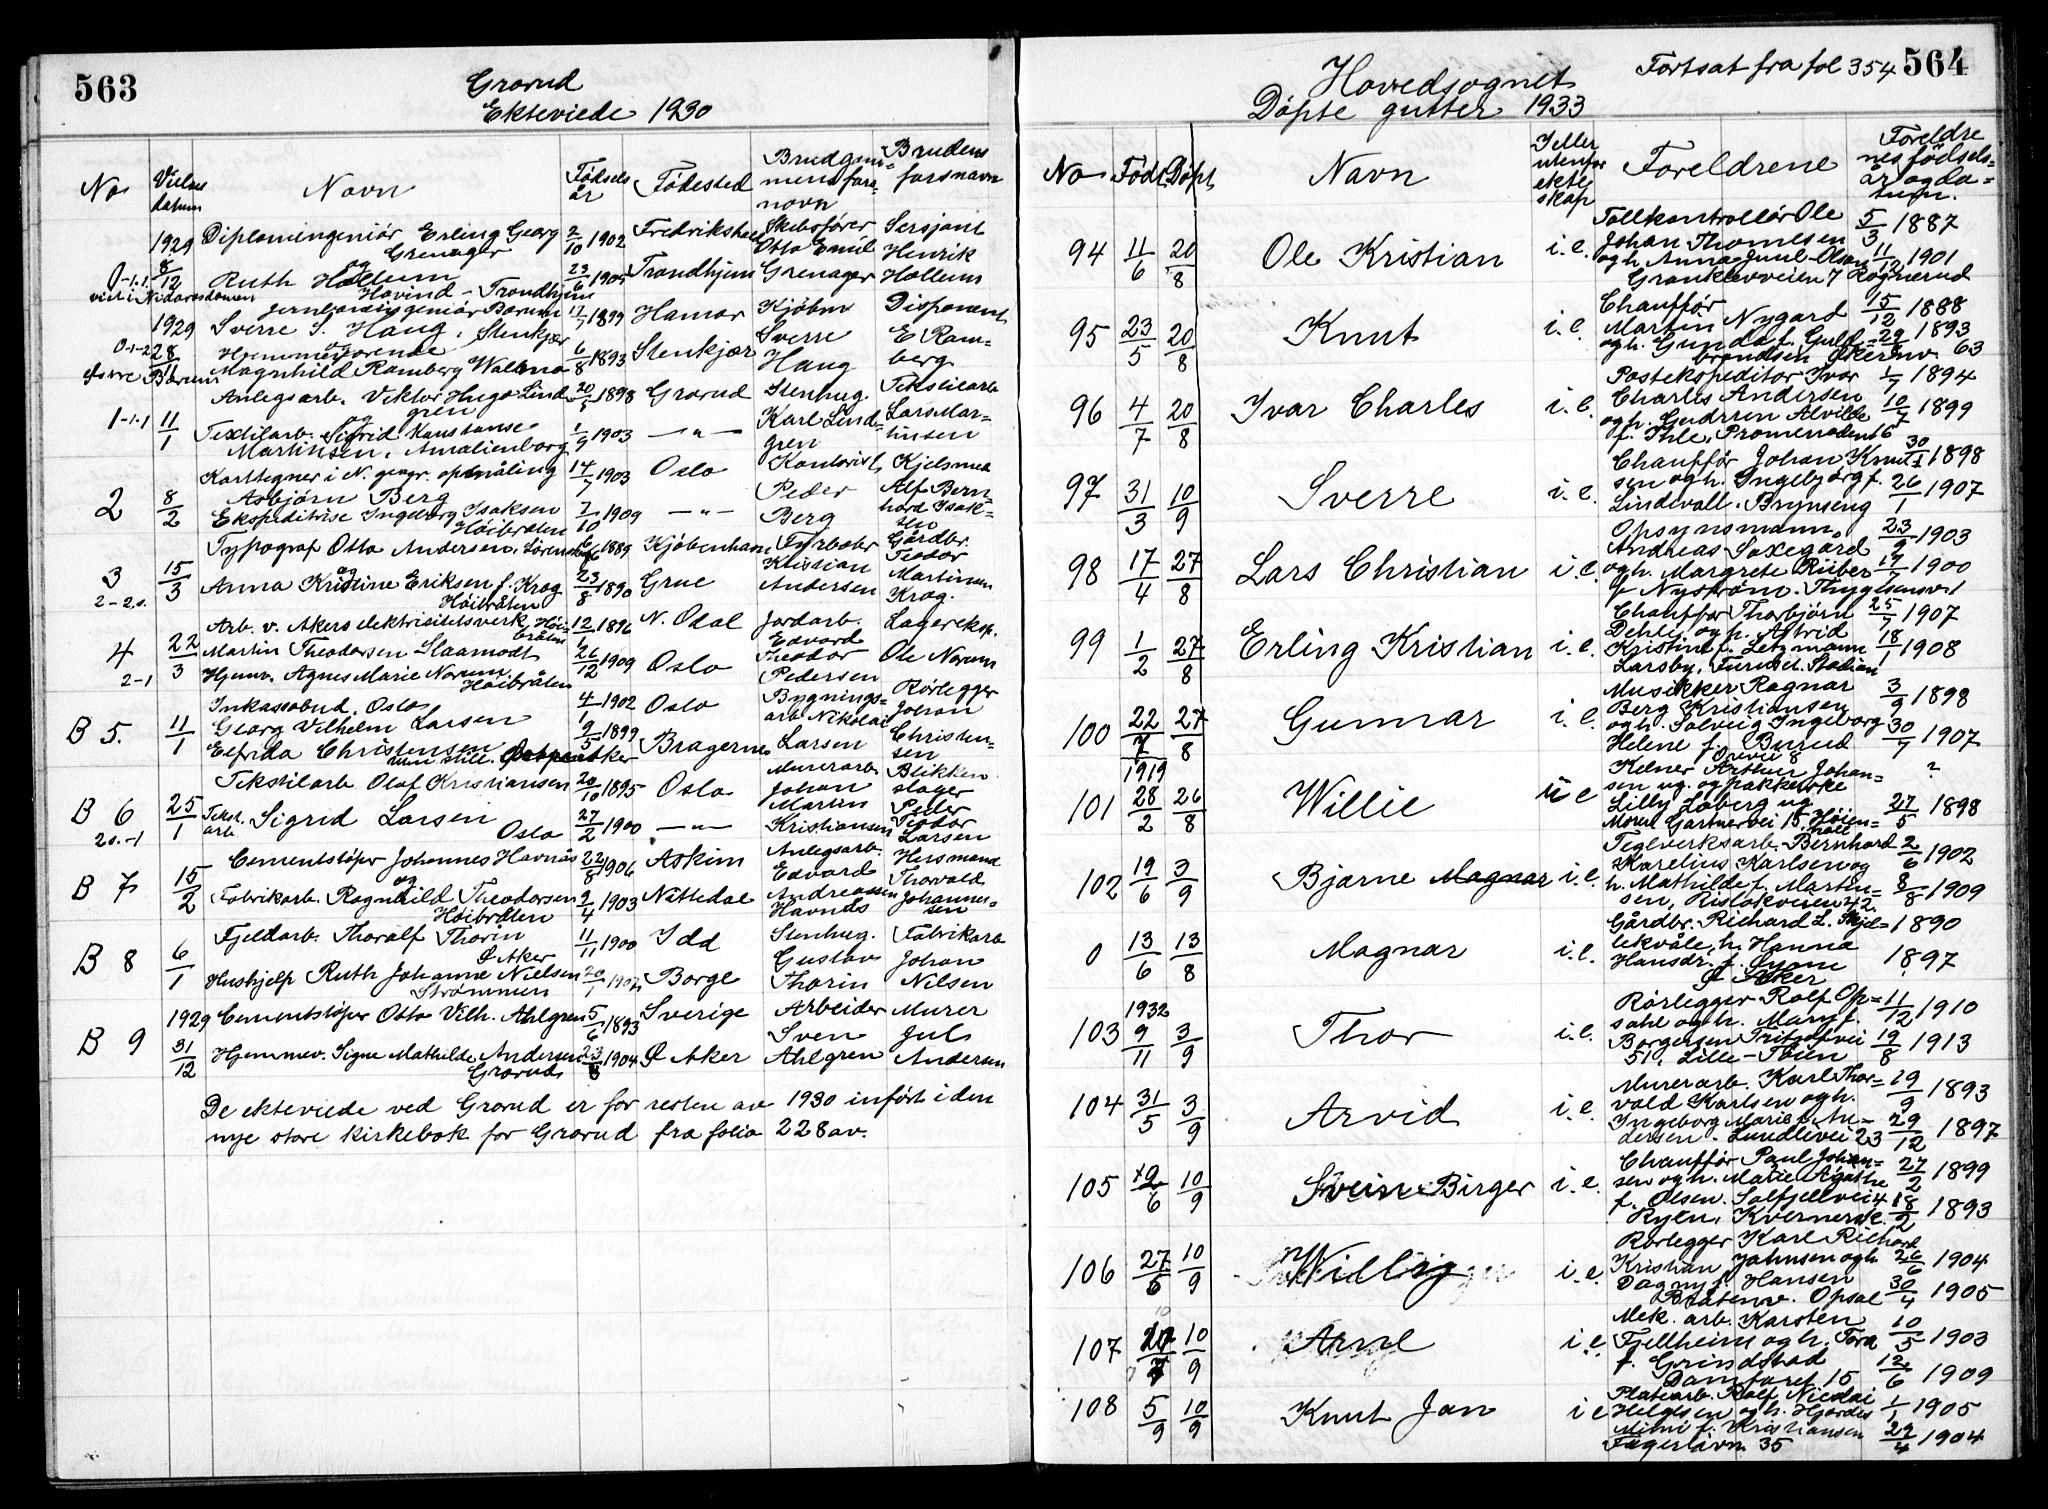 563
Grorud
Ektviede 1930
No
Vielses datum
Navn
Fødsels år
Fødested
Brudgommens farsnavn
Brudens farsnavn
1929 Diplomingeniör Erling Georg 2/10 1902 Fredrikshald Skibsfører Sersjant
Grenager Otto Emil Henrik
0-1.1 8/12 og Ruth Hollum 23/6 1905 Trondhjem Grenager Hollum
viet i Nidarosdomen Hovind - Trondhjem
1929 Jernbaneingeniör Bærum 17/7 1899 Hamar Kjøbm Disponent
Sverre S. Haug, Stenkjær Sverre E Ram-
0-1-2 28/11 og Hjemmeværende 6/8 1893 Stenkjær Haug berg
Østre Bærum Magnhild Ramberg
Anlegsarb. Viktor Hugo Lind- 20/5 1898 Grorud Stenhug. Tekstilarb
1-1.1 11/1 og gren Karl Lind- Lars Mar-
Textilarb. Sigrid Konstanse 1/9 1903 —"— gren tinsen
Martinsen, Amalienborg
Karttegner i N. geogr. opmåling 14/7 1903 Oslo Kontorist Kjelsmed
2 8/2 Asbjørn Berg Peder Alf Bern
Ekspeditrise Ingeborg Isaksen 7/10 1909 —"— Berg hard Isak-
Høibråten sen
Typograf Otto Andersen, 1889 Kjøbenhavn Fyrbøter Gårdbr.
3 15/3 og Kristian Teodor
2-2s. Anna Kristine Eriksen f. Krog 23/8 1890 Grue Andersen Martinsen
Høibråten Krog.
Arb. v. Akers elektrisitetsverk Høi- 12/12 1896 N. Odal Jordarb. Lagereksp.
4 22/3 Martin Theodorsen Slaamodt bråten Edvard
2-1 Hjemv. Agnes Marie Norum 26/12 1909 Oslo Theodor Ole Norum
Høibråten Pedersen
Inkassobud. Oslo 4/1 1902 Oslo Bygnings- Rørlegger
B 5. 11/1 Georg Vilhelm Larsen arb Nikolai Johan
Elfrida Christensen 9/5 1899 Bragernes Larsen Christen-
uten still. Østre Aker sen
Tekstilarb Olaf Kristiansen 20/10 1895 Oslo Murerarb. Blikken
B 6 25/1 Johan slager
2s.-1 Tekst. arb. Sigrid Larsen 27/2 1900 —"— Martin Peder
Oslo Kristiansen Teodor Larsen
Cementstøper Johannes Havnås 22/8 1906 Askim Anlegsarb. Husmand
B 7 15/2 og Edvard Thorvald
Fabrikarb. Ragnhild Theodorsen 9/4 1903 Nittedal Andreassen Johannes-
Høibråten Havnås sen
Fjeldarb. Thoralf Thorin 11/11 1900 Idd Stenhug. Fabrikarb
B 8 6/1 Ø Aker Gustav Johan
Hushjelp Ruth Johanne Nielsen 20/1 1907 Borge Thorin Nilsen
Strømmen
1929 Cementstøper Otto Vilh. Ahlgren 5/6 1893 Sverige Arbeider Murer
B 9 31/12 Sven Juls
Hjemmev. Signe Mathilde Andersen 23/8 1904 Ø Aker Ahlgren Andersen
Grorud
De ekteviede ved Grorud er for resten av 1930 inført i den
nye store kirkebok for Grorud fra folio 228 av.
564
Fortsat fra fol 354
Hovedsognet
Døpte gutter 1933
No Født Døpt Navn I eller utenfor ekteskap Foreldrene Foreldrenes fødselsår og datum.
94 11/6 20/8 Ole Kristian i. e. Tollkontrollør Ole 5/3 1887
Johan Thomesen
og h. Anna Juul-Olsen 11/12 1901
Granklevveien 7 Rognerud
95 23/5 20/8 Knut i. e. Chauffør 15/12 1888
Martin Nygard
og h. Gunda f. Guld- 29/8 1893
brandsen Økernv. 63
96 4/7 20/8 Ivar Charles i. e. Postekspeditør Ivar 1/7 1894
Charles Andersen
og h. Gudrun Alvilde 10/7 1899
f. Ihle, Promenaden 6
97 31/3 10/9 Sverre i. e. Chauffør Johan Knut- 30/1 1898
sen og h. Ingebjørg f. 26/1 1907
Lindevall. Brynseng
98 17/4 27/8 Lars Christian i. e. Opsynsmann 23/9 1903
Andreas Saxegård
og h. Margrete Rieber 19/7 1900
f Nystrøm. Thygesensv 1
99 1/2 27/8 Erling Kristian i. e. Chauffør Thorbjørn 25/7 1907
Dehli, og h. Astrid
Kristine f. Letzmann 18/1 1908
Larsby, Furuset Stasion
100 22/7 27/8 Gunnar i. e. Musikker Ragnar 3/9 1898
Berg Kristiansen
og h. Solveig Ingeborg 30/7 1907
Helene f. Burud
101 1919 28/2 26/8 Willie u e Kelner Arthur Johan- ?
sen ug. og pakkerske
Lilly Løberg ug 27/5 1898
Gartnervei 15, Høien-
hall
102 19/6 3/9 Bjarne ~~Magnar~~ i. e. Teglverksarb. Bernhard 2/6 1902
Marelius Karlsen og
h. Mathilde f. Martin- 8/8 1909
sen, Risløkveien 42
0 13/6 13/8 Magnar i. e. Gårdbr. Richard L. Skjel- 1890
lekvåle, h. Hanna
Hansdr. f. 1897
Ø Aker
103 1932 9/11 3/9 Thor i. e. Rørlegger Rolf Op- 11/12 1910
sahl og h. Mary f.
Borgersen Fritjofvei 19/8 1913
51, Lille-Tøien
104 31/5 3/9 Arvid i. e. Murerarb. Karl Thor- 19/9 1893
vald Karlsen og h.
Ingeborg Marie f. An- 29/12 1897
dersen. Lundlivei 23
105 19/6 10/9 Svein Birger i. e. Chauffør Paul Johan- 27/2 1899
sen og h. Marie Agathe
f. Olsen. Solfjellvei 4 18/2 1893
Ryen, Kværner
106 27/6 10/9 Willy i. e. Rørlegger Karl Richard
Kristian Johnsen og h. 26/6 1904
Dagny f. Hansen
Bråtenv. Opsal 30/4 1905
107 10/9 Arne i e. Mek. arb. Karsten 10/5 1903
Fjellheim og h. Tora
f. Grindstad 12/6 1909
Damfaret 15
108 5/9 10/9 Knut Jan i e Platearb. Rolf Nicolai 1/1 1905
Helgesen og h. Hjørdis
Mimi f. Kristiansen 22/4 1904
35